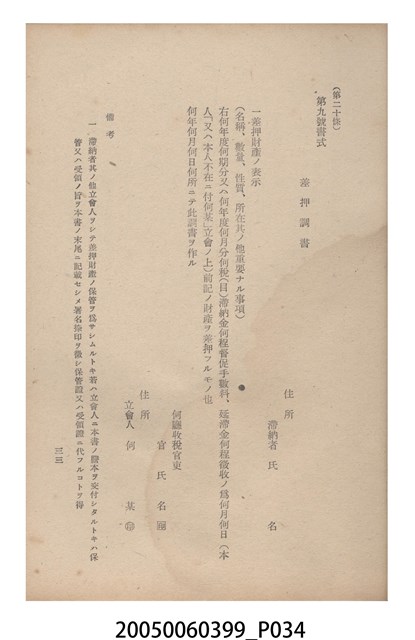 (第二十條)
第九號書式
差押調書
住所
滯納者 氏名
一 差押財產ノ表示
(名稱、數量、性質、所在其ノ他重要ナル事項)
右何年度何期分又ハ何年度何月分何稅(目)滯納金何程督促手數料、延滯金何程徵收ノ爲何月何日(本
人「又ハ本人不在ニ付何某」立會ノ上)前記ノ財產ヲ差押フルモノ也
何年何月何日何所ニテ此調書ヲ作ル
何廳收稅官吏
官氏名㊞
住所
立會人 何某㊞
備考
一 滯納者其ノ他立會人ヲシテ差押財產ノ保管ヲ爲サシムルトキ若ハ立會人ニ本書ノ謄本ヲ交付シタルトキハ保
管又ハ受領ノ旨ヲ本書ノ末尾ニ記載セシメ署名捺印ヲ徵シ保管證又ハ受領證ニ代フルコトヲ得
三三
20050060399_P034